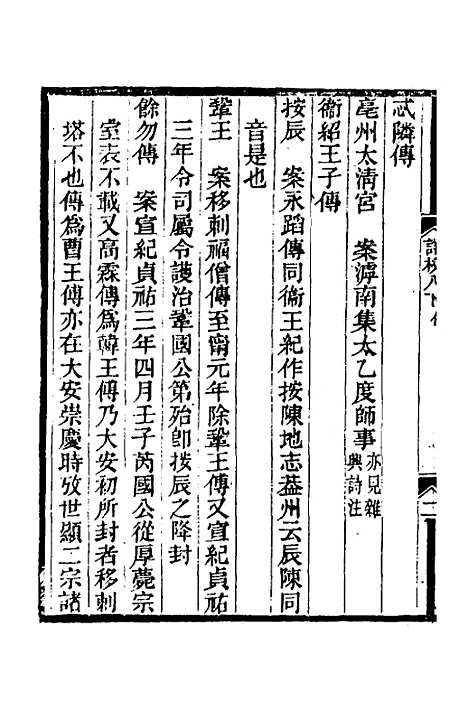 忒隣傳
亳州太清宮　案滹南集太乙度師事亦見雜興詩注
衞紹王子傳
按辰　案永蹈傳同衞王紀作按陳地志葢州云辰陳同
音是也
鞏王　案移刺福僧傳至甯元年除鞏王傅又宣紀貞祐
三年令司屬令護治鞏國公第殆卽按辰之降封
餘勿傳　案宣紀貞祐三年四月壬子芮國公從厚薨宗
室表不載又高霖傳爲韓王傅乃大安初所封者移刺
塔不也傳爲曹王傅亦在大安崇慶時攷世顯二宗諸